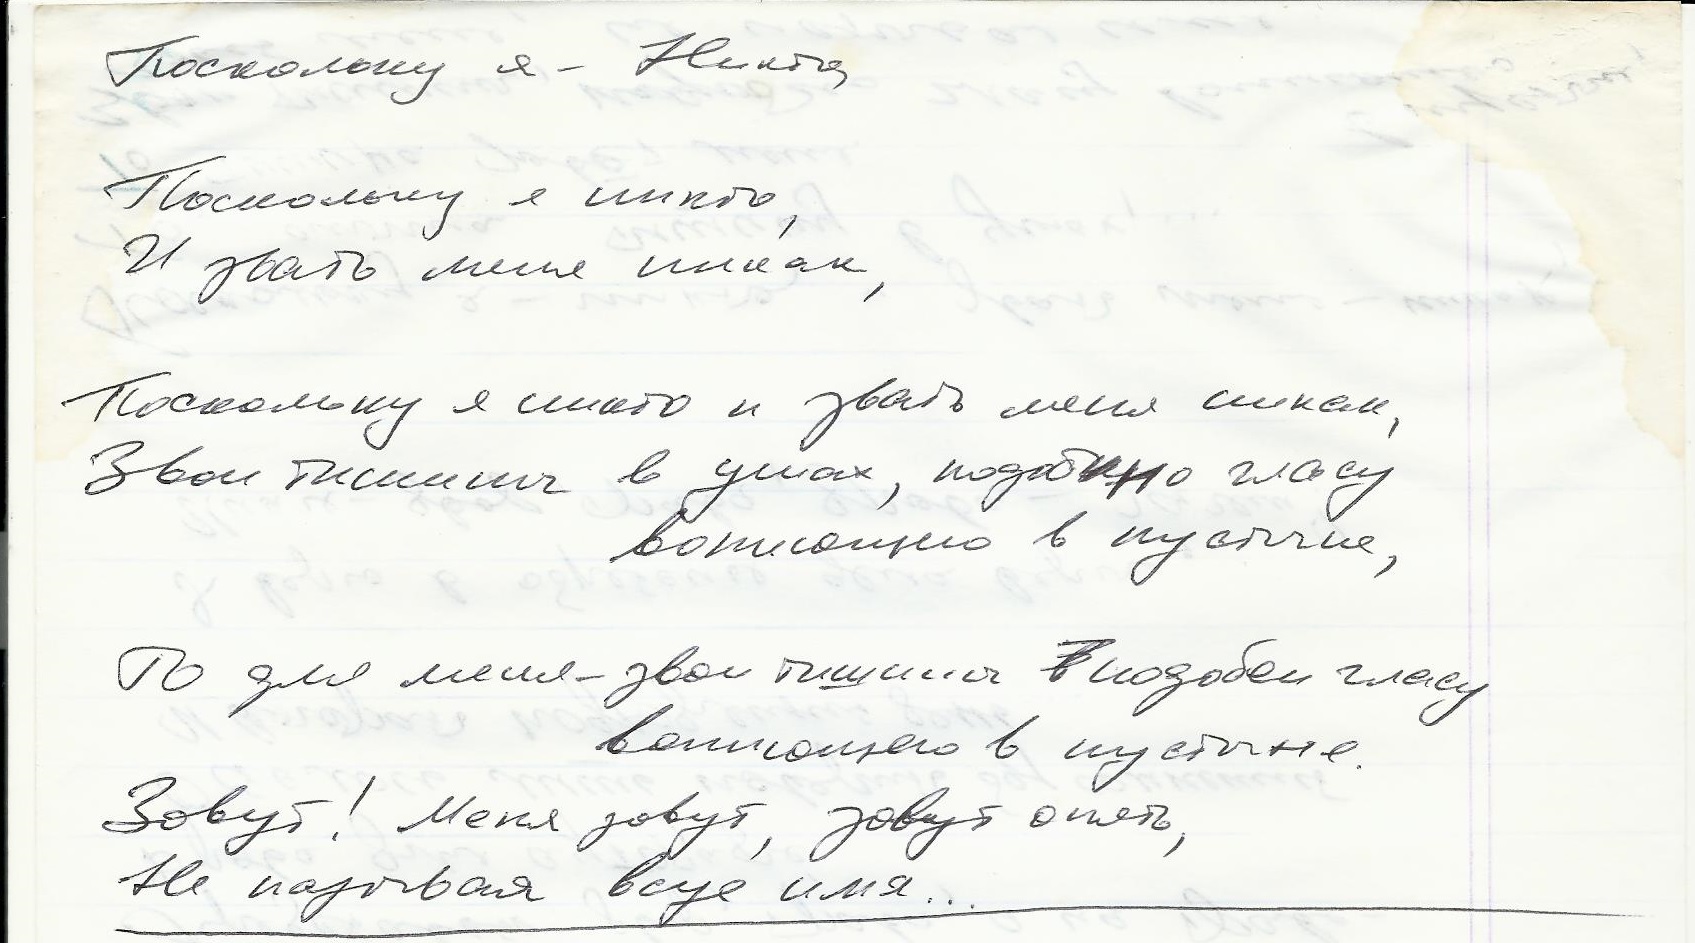 Поскольку я – Никто,
Поскольку я никто,
И звать меня никак,
Поскольку я никто и звать меня никак,
Звон тишины в ушах, подобно гласу
вопиющего в пустыне,
То для меня – звон тишины подобен гласу
вопиющего в пустыне.
Зовут! Меня зовут, зовут опять,
Не называя всуе имя...